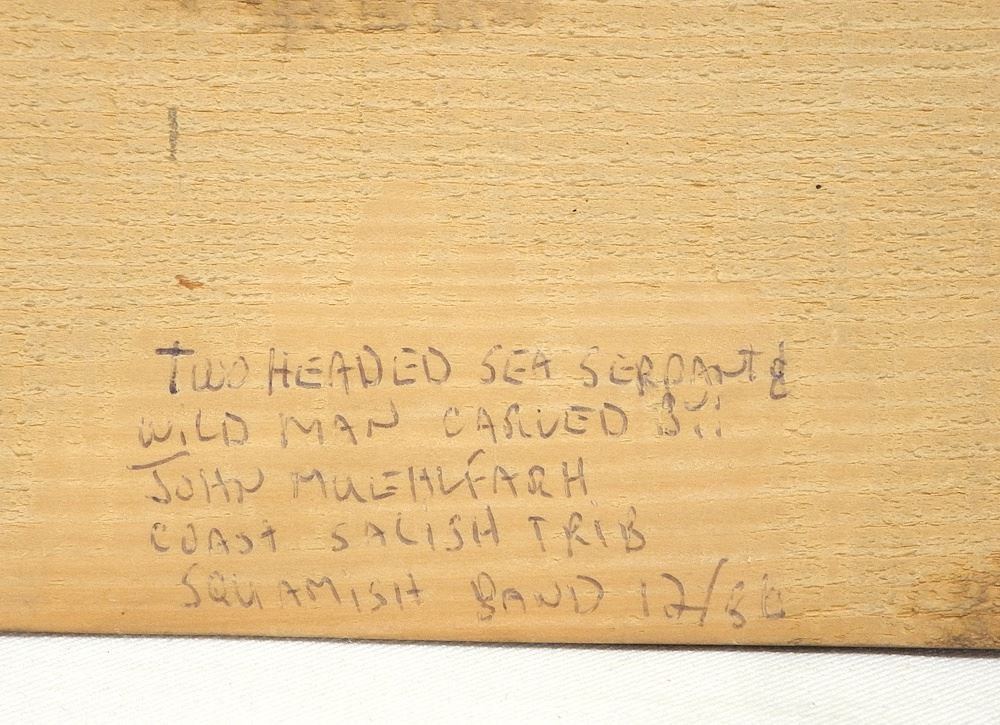 TWO HEADED SEA SERPANT &
WILD MAN CARVED BY:
JOHN MUEHLFARH
COAST SALISH TRIB
SQUAMISH BAND 12/86